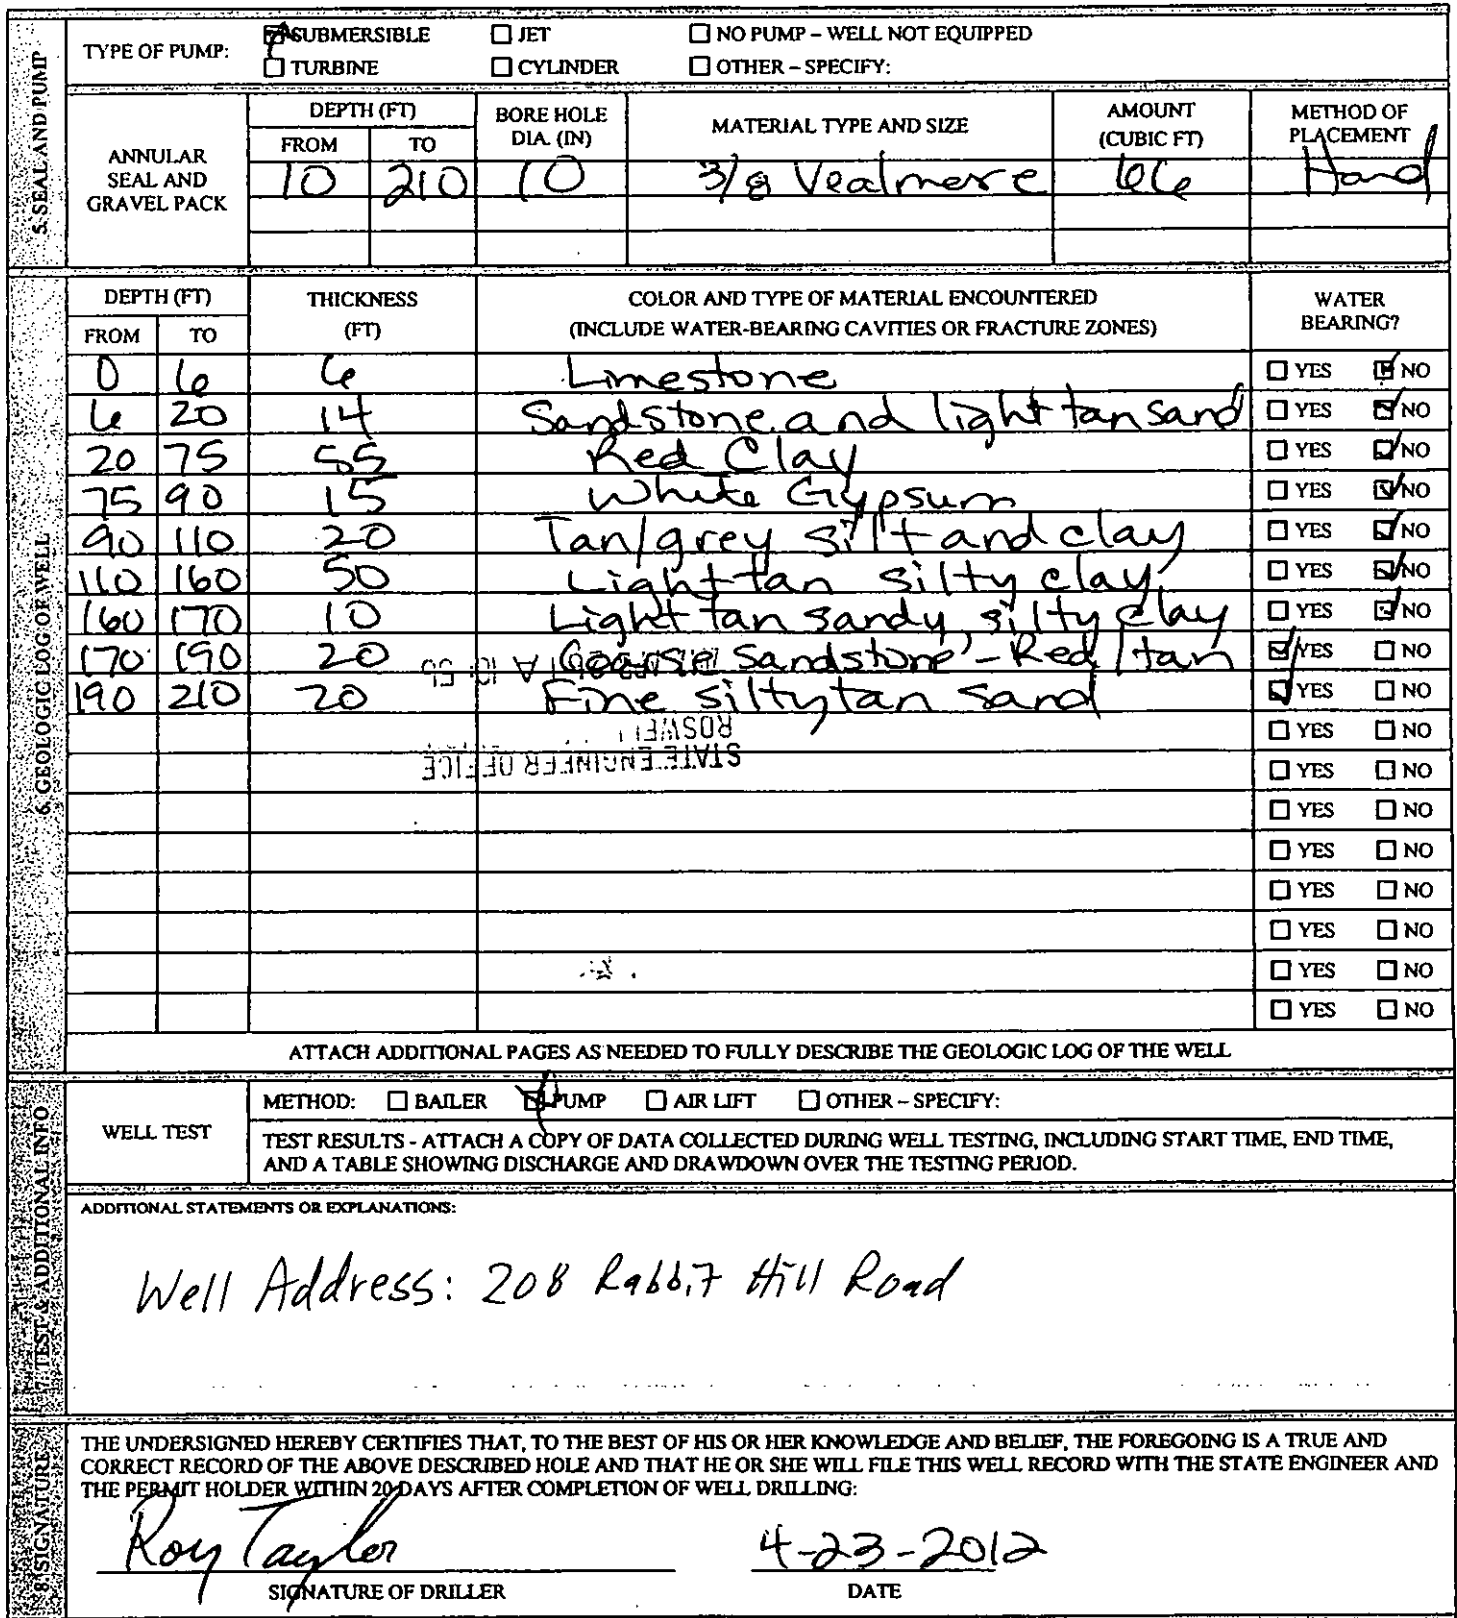 5. SEAL AND PUMP
TYPE OF PUMP: ☒ SUBMERSIBLE ☐ JET ☐ NO PUMP – WELL NOT EQUIPPED
☐ TURBINE ☐ CYLINDER ☐ OTHER – SPECIFY:
ANNULAR SEAL AND GRAVEL PACK
DEPTH (FT) BORE HOLE DIA. (IN) MATERIAL TYPE AND SIZE AMOUNT (CUBIC FT) METHOD OF PLACEMENT
FROM TO
10 210 10 3/8 Vealmere 66 Hand
6. GEOLOGIC LOG OF WELL
DEPTH (FT) THICKNESS (FT) COLOR AND TYPE OF MATERIAL ENCOUNTERED WATER BEARING?
FROM TO (INCLUDE WATER-BEARING CAVITIES OR FRACTURE ZONES)
0 6 6 Limestone ☐ YES ☒ NO
6 20 14 Sandstone and light tan sand ☐ YES ☒ NO
20 75 55 Red Clay ☐ YES ☒ NO
75 90 15 White Gypsum ☐ YES ☒ NO
90 110 20 Tan/grey silt and clay ☐ YES ☒ NO
110 160 50 Light tan silty clay ☐ YES ☒ NO
160 170 10 Light tan sandy silty clay ☐ YES ☒ NO
170 190 20 Coarse Sandstone - Red/tan ☒ YES ☐ NO
190 210 20 Fine silty tan sand ☒ YES ☐ NO
☐ YES ☐ NO
☐ YES ☐ NO
☐ YES ☐ NO
☐ YES ☐ NO
☐ YES ☐ NO
☐ YES ☐ NO
☐ YES ☐ NO
☐ YES ☐ NO
STATE ENGINEER OFFICE
ROSWELL
ATTACH ADDITIONAL PAGES AS NEEDED TO FULLY DESCRIBE THE GEOLOGIC LOG OF THE WELL
7. TEST & ADDITIONAL INFO
WELL TEST
METHOD: ☐ BAILER ☒ PUMP ☐ AIR LIFT ☐ OTHER – SPECIFY:
TEST RESULTS - ATTACH A COPY OF DATA COLLECTED DURING WELL TESTING, INCLUDING START TIME, END TIME,
AND A TABLE SHOWING DISCHARGE AND DRAWDOWN OVER THE TESTING PERIOD.
ADDITIONAL STATEMENTS OR EXPLANATIONS:
Well Address: 208 Rabbit Hill Road
8. SIGNATURE
THE UNDERSIGNED HEREBY CERTIFIES THAT, TO THE BEST OF HIS OR HER KNOWLEDGE AND BELIEF, THE FOREGOING IS A TRUE AND
CORRECT RECORD OF THE ABOVE DESCRIBED HOLE AND THAT HE OR SHE WILL FILE THIS WELL RECORD WITH THE STATE ENGINEER AND
THE PERMIT HOLDER WITHIN 20 DAYS AFTER COMPLETION OF WELL DRILLING:
Roy Taylor 4-23-2012
SIGNATURE OF DRILLER DATE